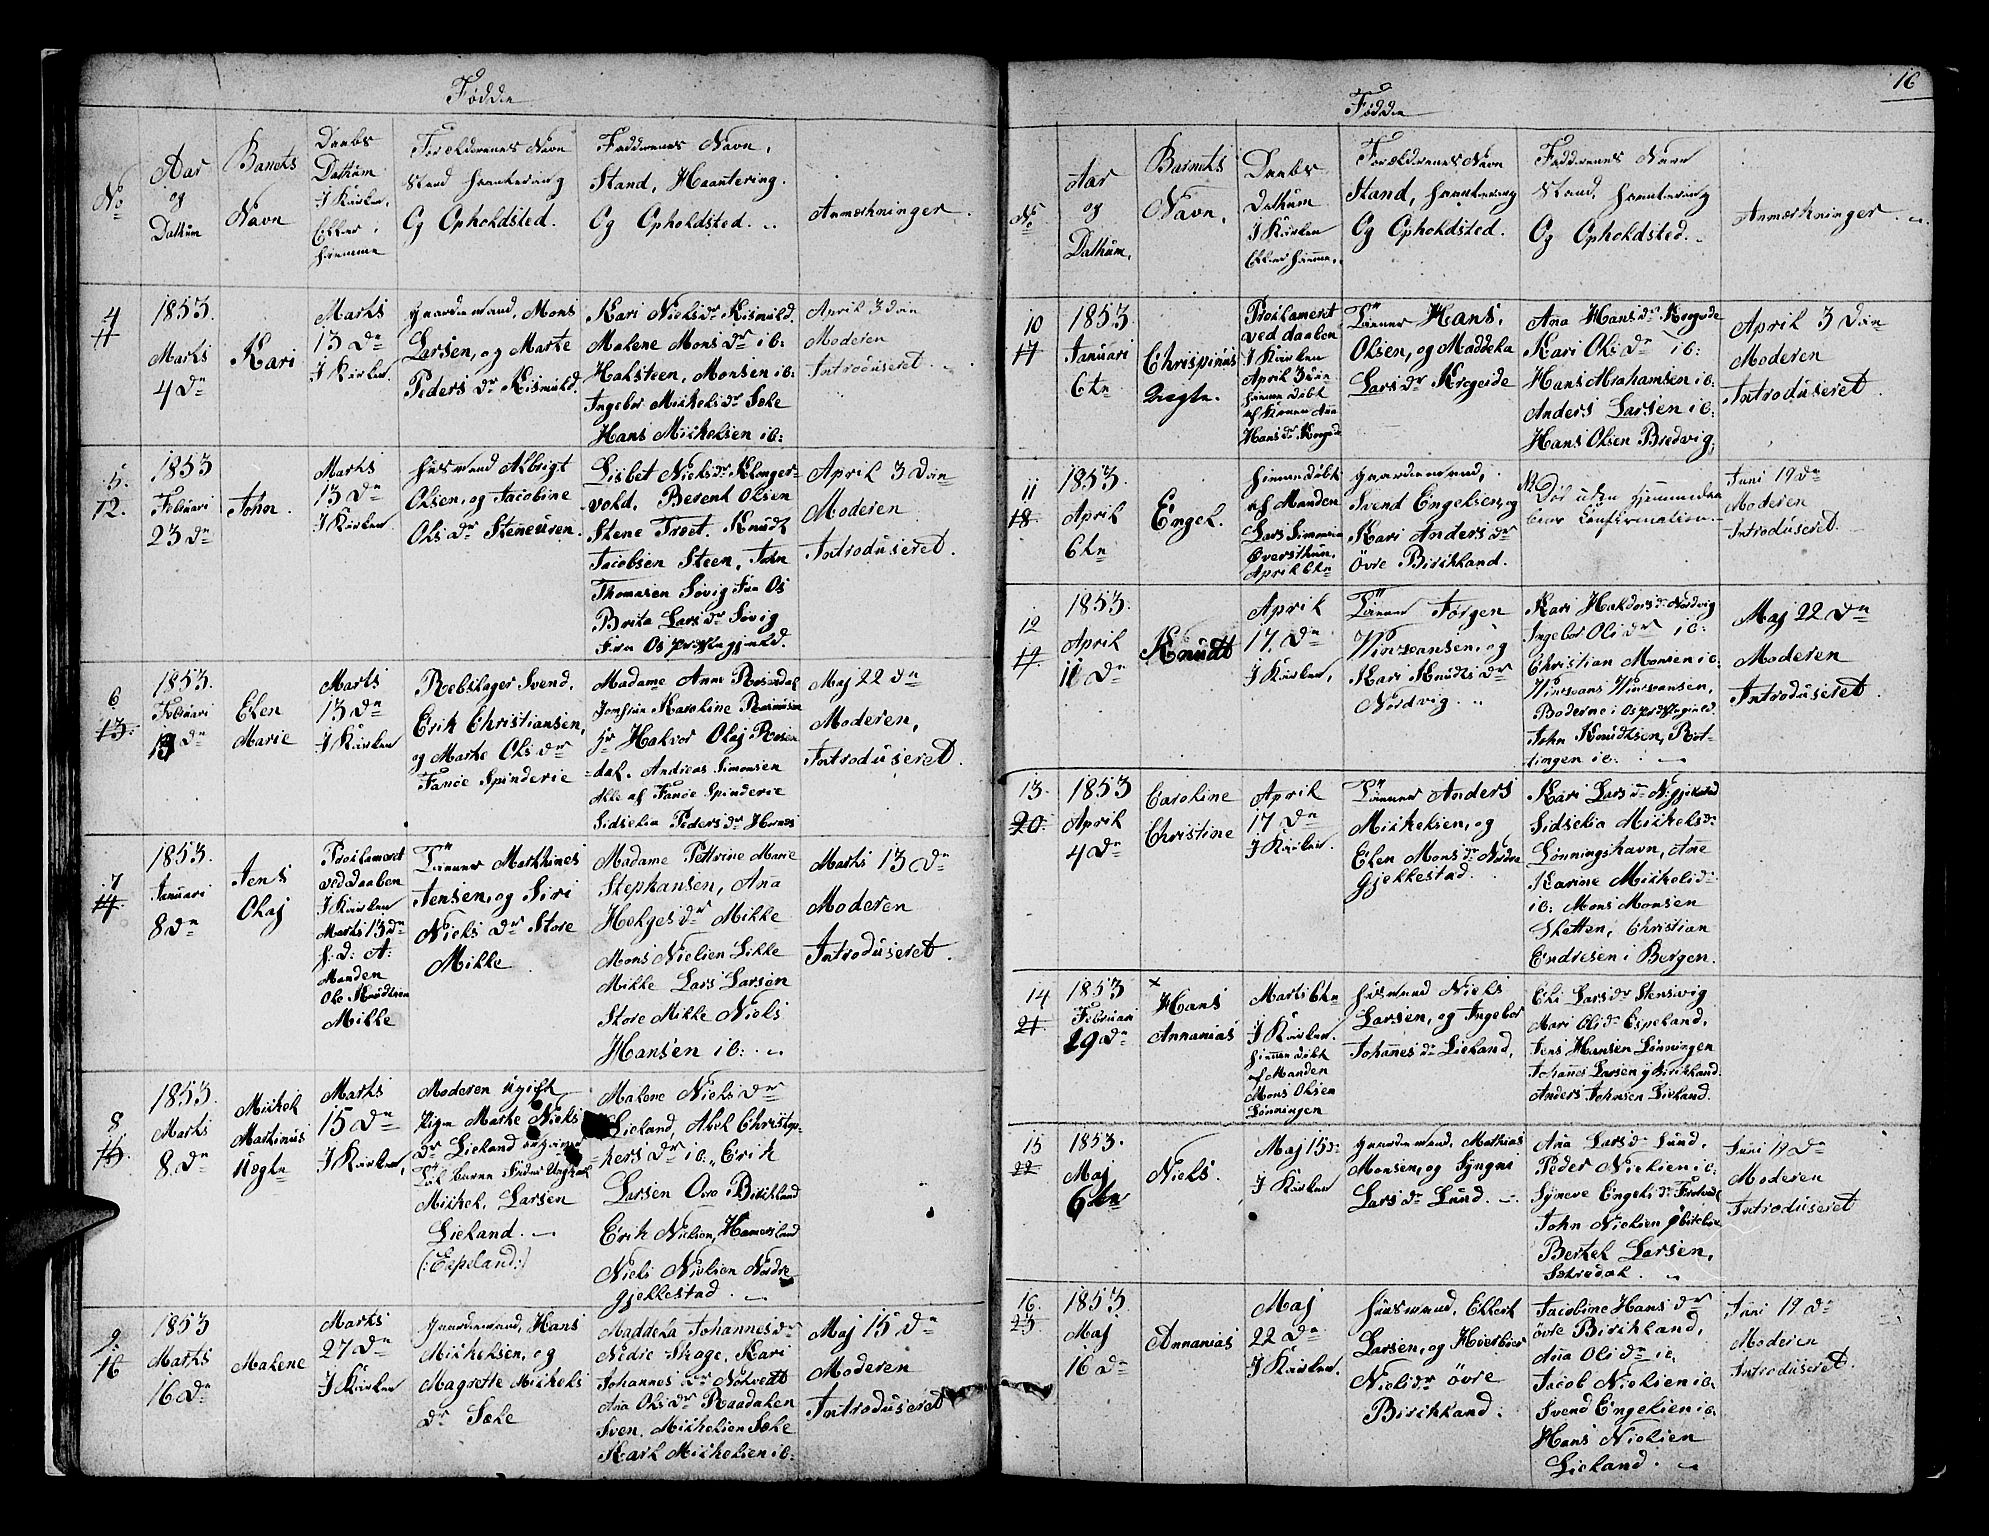 Fødde
No
Aar
og
Dathum
Barnets
Navn
Daabs
Dathum
I Kirken
Eller i
hiemme
Forælderenes Navn
Stand haantering
Og Opholdsted.
Fadderenes Navn,
Stand, Haantering.
Og Opholdsted.
Anmærkninger.
4
11
1853.
Marts
4 Dn
Kari
Marts
13 Dn
I Kirken
Gaardemand, Mons
Larsen, og Marte
Peders Dr Kismuld.
Kari Niels Dr Kismuld.
Malene Mons Dr ib:
Halsteen, Monsen ib:
Ingebor Mickels Dr Sæle
Hans Mickelsen ib:
April 3 Die
Moderen
Introduseret.
5.
12.
1853
Februari
23 Dn
John.
Marts
13 Dn
I Kirken
Husmand Albrigt
Olsen, og Jacobine
Ols Dr Steneuren.
Lisbet Niels Dr Klonger-
vold, Berent Olsen
Stene Troet. Knudt
Jacobsen Steen, John
Thomasen Søvig Fra Os
Brita Lars Dr Søvig
Fra Os Præstegjeld.
April 3 Die
Moderen
Introduseret.
6
13.
1853.
Februari
Dn
Elen
Marie
Marts
13 Dn
I Kirken
Rebslager Svend.
Erik Christiansen,
og Marte Ols Dr
Fanøe Spinderie
Madame Anne Rosendal
Jomfrue Karoline Rasmusen
Hr Halvor Olaj Rosen
dal. Andreas Simonsen
Alle af Fanøe Spinderie
Sidselia Peders Dr Hornes
Maj 22 Dn
Moderen,
Introduseret.
7
14.
1853.
Januari
8 Dn
Jens
Olaj
Proklameret
ved Daaben
I Kirken
Marts 13 Dn
h: d: A:
Manden
Ole Knudtsen
Milde
Tiener Mathines
Jensen, og Siri
Niels Dr Store
Milde
Madame Pettrine Marie
Stephansen, Ana
Helges Dr Milde
Mons Nielsen Lille
Milde Lars Larsen
Store Milde Niels
Hansen ib:
Marts 13 Dn
Moderen
Introduseret.
8
15
1853.
Marts
8. Dn
Mickel
Martinus
Uegte
Marts
15 Dn
I Kirken,
Moderen Ugift
Pige Marte Niels
Dr Lieland
Mickel, Larsen
Lieland.
(:Espeland:)
Malene Niels Dr
Lieland, Abel Christop-
hers Dr ib., Erik
Larsen Øvre Birkeland
Erik Nielsen, Hamersland
Niels Nielsen Nordre
Gjellestad.
9.
16
1853
Marts
16 Dn
Malene
Marts
27 Dn
I Kirken
Gaardemand, Hans
Mickelsen, og
Magrette Mickels
Dr Sæle
Maddela Johannes Dr
Nedre Skage. Kari
Johannes Dr Nøtvedt
Ana Ols Dr Raadalen
Sven. Mickelsen Sæle
Karl Mickelsen ib:
Maj 15 Dn
Moderen
Introduseret
16
Fødde
No
Aar
og
Dathum,
Barnets
Navn,
Daabs
Dathum
I Kirken
Eller hieme.
Forælderenes Navn
Stand, haantering
Og Opholdsted.
Fadderenes Navn
Stand, haantering
Og Opholdsted.
Anmærkninger.
10
17
1853
Januari
6te
Chrispinus
Ægte.
Proklameret
ved daaben
I Kirken
April 3 die
hieme døbt
af Konen Ana
Hans Dr Krogeide
Tiener Hans,
Olsen, og Maddela
Lars Dr Krogeide
Ana Hans Dr Krogeide
Kari Ols Dr ib:
Hans Abrahamsen ib:
Anders Larsen ib:
Hans Olsen Bredvig,
April 3 Die
Moderen
Introduseret.
11
18.
1853.
April
6te
Engel.
hiemedøbt
af Manden
Lars Simonsen
Øversthun,
April 6te
Gaardemand,
Svend Engelsen, og
Kari Anders Dr
Øvre Birckland.
NB Død uden hjemmedaa
bens Confirmation
Juni 19 Dn
Moderen
Introduseret.
12
19.
1853.
April
11 Dn
Knudt
April
17. Dn
I Kirken,
Tiener Jørgen
og
Kari Knudts Dr
Nordvig.
Kari Haldors Dr Nordvig
Ingebor Oli Dr ib:
Christian Monsen ib.
Boderne i Os Præstegield
John Knudtsen, Røt-
tingen ib:
Maj 22 Dn
Moderen
Introduseret.
13.
20.
1853
April
4 Dn
Caroline
Christine
April
17 Dn
I Kirken.
Tiener Anders
Mickelsen, og
Elen Mons Dr Nordre
Gjellestad.
Kari Lars Dr
Sidselia Mickels Dr
Lønningshavn, Ane
Karine Mickels Dr
ib: Mons Monsen
Sketten, Christian
Endresen i Bergen.
14
21.
1853
Februari
29 Dn
x
Hans
Annanias
Marts 6te
I Kirken.
hieme døbt
af Manden
Mons Olsen
Lønningen
Husmand Niels
Larsen, og Ingebor
Johannes Dr Lieland,
Eli Lars Dr Stensvig
Mari Oli Dr Espeland,
Jens Hansen Lønningen
Johannes Larsen y Birkeland
Anders Johnsen Lieland.
15
22
1853.
Maj
6te
Niels.
Maj 15 D:
I Kirken
Gaardemand, Mathias
Monsen, og Syngni
Lars Dr Lund.
Ana Lars Dr Lund,
Peder Nielsen ib:
Syneve Engels Dr
John Nielsen
Bertel Larsen,
Sætredal.
Juni 19 Dn
Moderen
Introduseret
16.
23
1853.
Maj
16 Dn
Annanias
Maj
22 Dn
I Kirken.
Huusmand, Ellert
Larsen, og
Niels Dr øvre
Birckland.
Jacobine Hans Dr
øvre Birckland,
Ana Oli Dr ib,
Jacob Nielsen ib.
Svend Engelsen ib.
Hans Nielsen
Lieland.
Juni 19 Dn
Moderen
Introduseret.